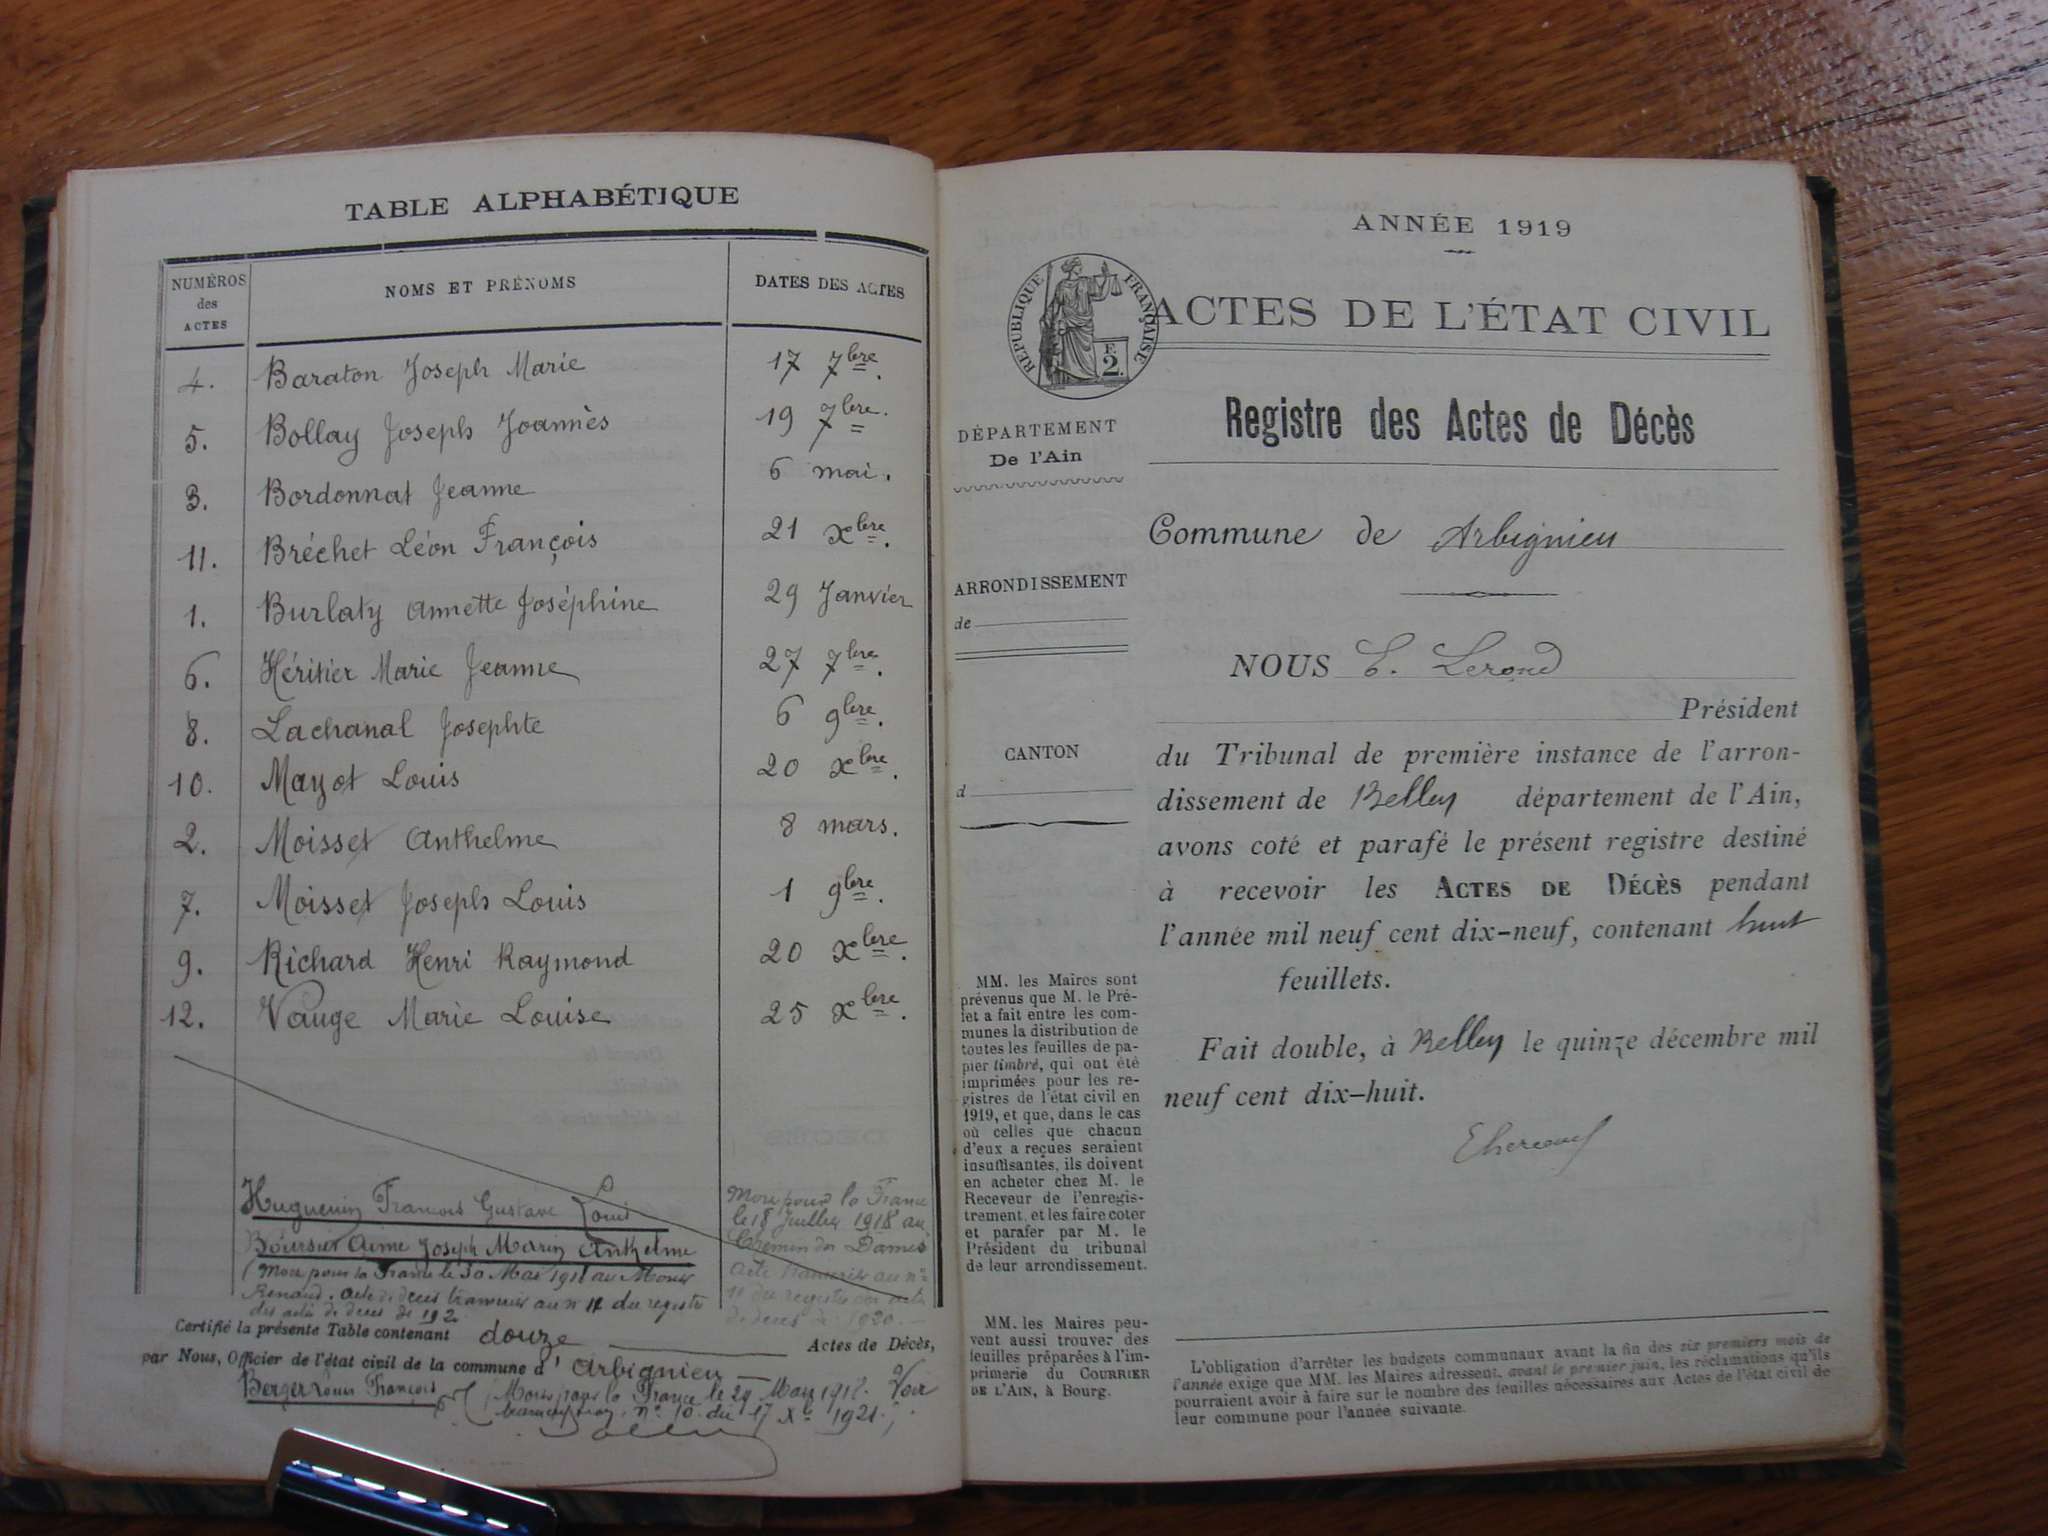 TABLE ALPHABÉTIQUE
NUMÉROS des ACTES NOMS ET PRÉNOMS DATES DES ACTES
4. Baraton Joseph Marie 17 7bre.
5. Bollay Joseph Joannès 19 7bre.
3. Bordonnat Jeanne 6 mai.
11. Bréchet Léon François 21 xbre.
1. Burlaty Annette Joséphine 29 Janvier
6. Héritier Marie Jeanne 27 7bre.
8. Lachanal Josephte 6 9bre.
10. Mayot Louis 20 xbre.
2. Moisset Anthelme 8 mars.
7. Moisset Joseph Louis 1 9bre.
9. Richard Henri Raymond 20 xbre.
12. Vauge Marie Louise 25 xbre.
Huguenin François Gustave Louis
Mort pour la France
le 18 Juillet 1918 au
Chemin des Dames
acte transcrit au n°
11 du registre des actes
de décès de 1920.
Boursier Aimé Joseph Marin Anthelme
(Mort pour la France le 30 Mai 1918 au Mont
Renaud. acte de décès transcrit au n° du registre
des actes de décès de
Certifié la présente Table contenant douze Actes de Décès,
par Nous, Officier de l'état civil de la commune d'Arbignieu
Berger Louis François (Mort pour la France le 29 Mai 1918. Voir
n° 10 du 17 Xb 1921.)
ANNÉE 1919
RÉPUBLIQUE FRANÇAISE
F.
2.
ACTES DE L'ÉTAT CIVIL
Registre des Actes de Décès
DÉPARTEMENT
De l'Ain
Commune de Arbignieu
ARRONDISSEMENT
de
NOUS E. Lerond
Président
CANTON
d
du Tribunal de première instance de l'arron-
dissement de Belley département de l'Ain,
avons coté et parafé le présent registre destiné
à recevoir les ACTES DE DÉCÈS pendant
l'année mil neuf cent dix-neuf, contenant huit
feuillets.
Fait double, à Belley le quinze décembre mil
neuf cent dix-huit.
MM. les Maires sont
prévenus que M. le Pré-
fet a fait entre les com-
munes la distribution de
toutes les feuilles de pa-
pier timbré, qui ont été
imprimées pour les re-
gistres de l'état civil en
1919, et que, dans le cas
où celles que chacun
d'eux a reçues seraient
insuffisantes, ils doivent
en acheter chez M. le
Receveur de l'enregis-
trement, et les faire coter
et parafer par M. le
Président du tribunal
de leur arrondissement.
MM. les Maires peu-
vent aussi trouver des
feuilles préparées à l'im-
primerie du COURRIER
DE L'AIN, à Bourg.
L'obligation d'arrêter les budgets communaux avant la fin des six premiers mois de
l'année exige que MM. les Maires adressent, avant le premier juin, les réclamations qu'ils
pourraient avoir à faire sur le nombre des feuilles nécessaires aux Actes de l'état civil de
leur commune pour l'année suivante.